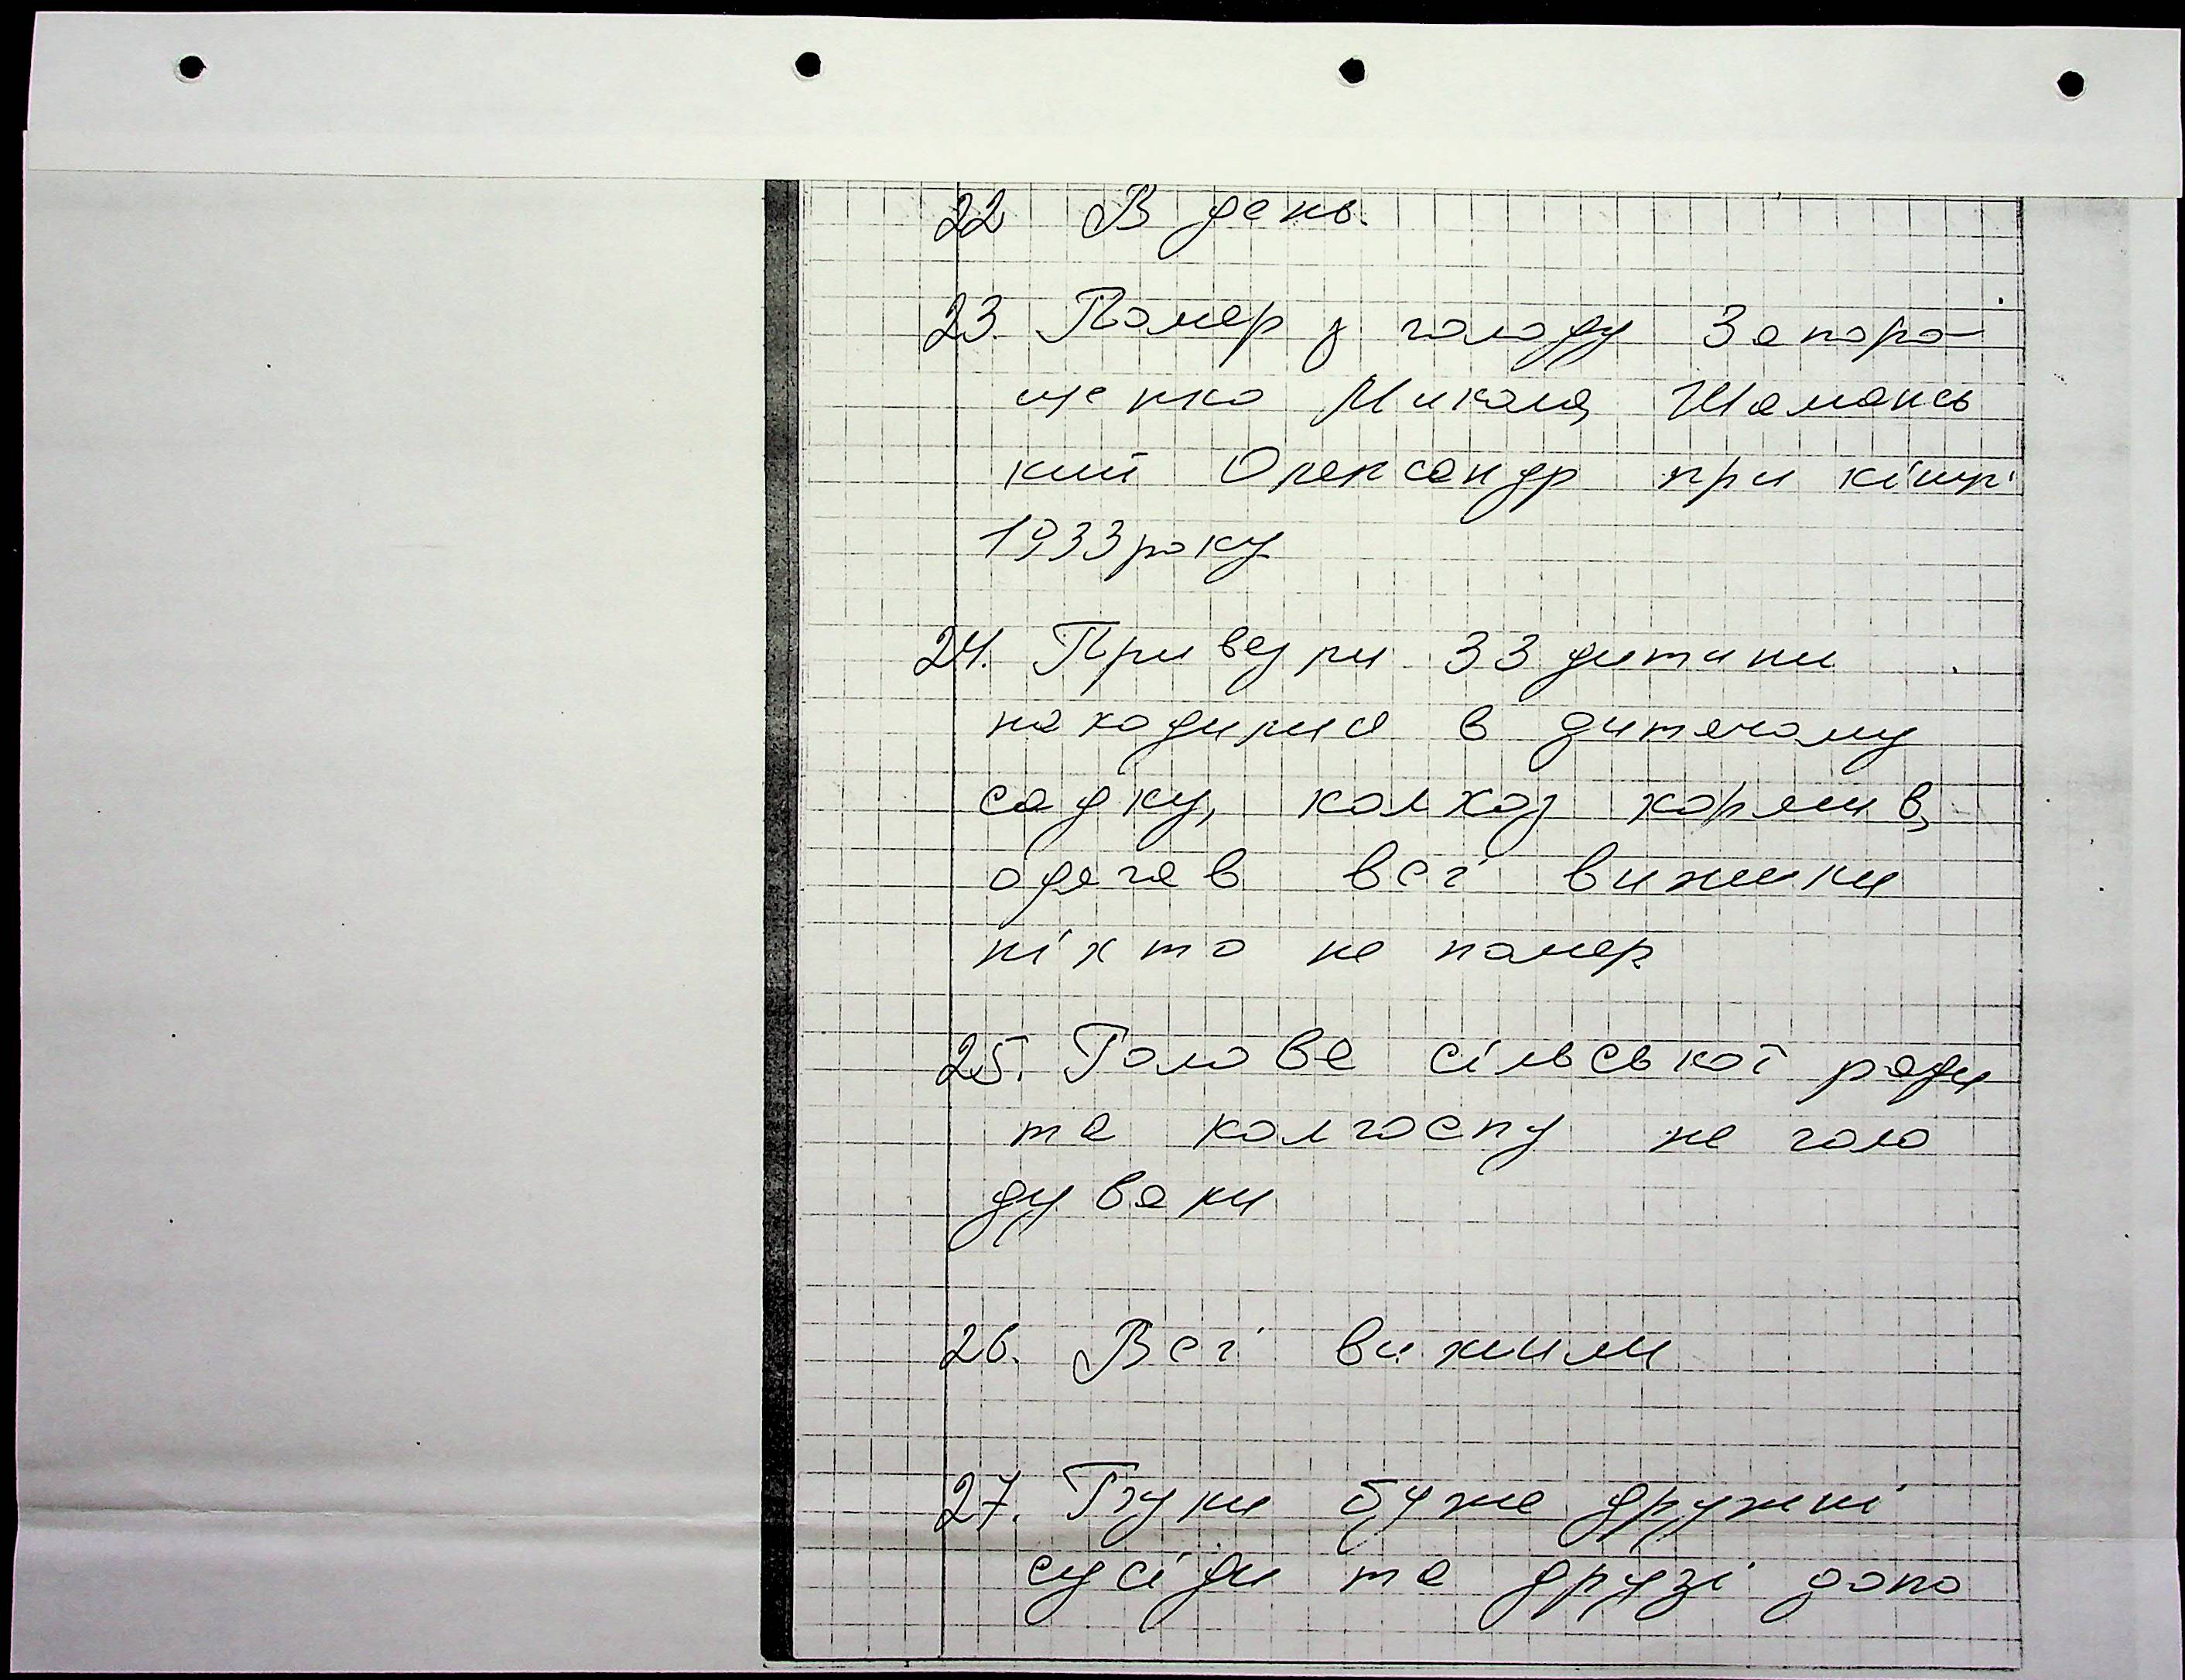 22 В день.
23. Помер з голоду Запоро-
щенко Микола, Шамансь
кий Олександр при кінці
1933 року
24. Привезли 33 дитини
находилися в дитячому
садку, колхоз кормив,
одягав всі вижили
ніхто не помер
25. Голова сільської ради
та колгоспу не голо
дували
26. Всі вижили
27. дуже дружні
сусіди та друзі допо